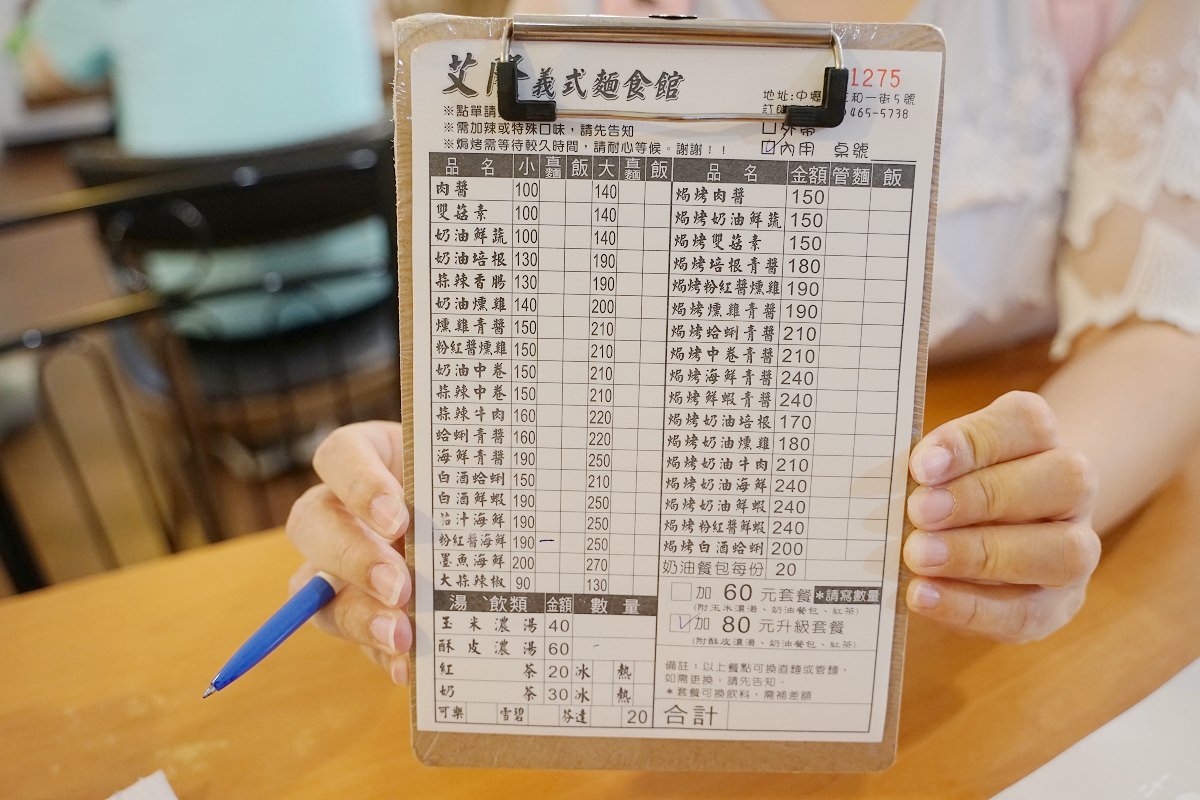 艾 義式麵食館
1275
地址:中壢 和一街5號
465-5738
※點單請
※需加辣或特殊口味,請先告知
※焗烤需等待較久時間,請耐心等候。謝謝!!
□外帶
□內用 桌號
品 名 小 直麵 飯 大 直麵 飯
肉醬 100 140
雙菇素 100 140
奶油鮮蔬 100 140
奶油培根 130 190
蒜辣香腸 130 190
奶油燻雞 140 200
燻雞青醬 150 210
粉紅醬燻雞 150 210
奶油中卷 150 210
蒜辣中卷 150 210
蒜辣牛肉 160 220
蛤蜊青醬 160 220
海鮮青醬 190 250
白酒蛤蜊 150 210
白酒鮮蝦 190 250
茄汁海鮮 190 250
粉紅醬海鮮 190 250
墨魚海鮮 200 270
大蒜辣椒 90 130
湯、飲類 金額 數量
玉米濃湯 40
酥皮濃湯 60
紅茶 20 冰 熱
奶茶 30 冰 熱
可樂 雪碧 芬達 20
品 名 金額 管麵 飯
焗烤肉醬 150
焗烤奶油鮮蔬 150
焗烤雙菇素 150
焗烤培根青醬 180
焗烤粉紅醬燻雞 190
焗烤燻雞青醬 190
焗烤蛤蜊青醬 210
焗烤中卷青醬 210
焗烤海鮮青醬 240
焗烤鮮蝦青醬 240
焗烤奶油培根 170
焗烤奶油燻雞 180
焗烤奶油牛肉 210
焗烤奶油海鮮 240
焗烤奶油鮮蝦 240
焗烤粉紅醬鮮蝦 240
焗烤白酒蛤蜊 200
奶油餐包每份 20
□加 60 元套餐 *請寫數量
(附玉米濃湯、奶油餐包、紅茶)
□加 80 元升級套餐
(附酥皮濃湯、奶油餐包、紅茶)
備註:以上餐點可換直麵或管麵,
如需更換,請先告知。
*套餐可換飲料,需補差額
合計